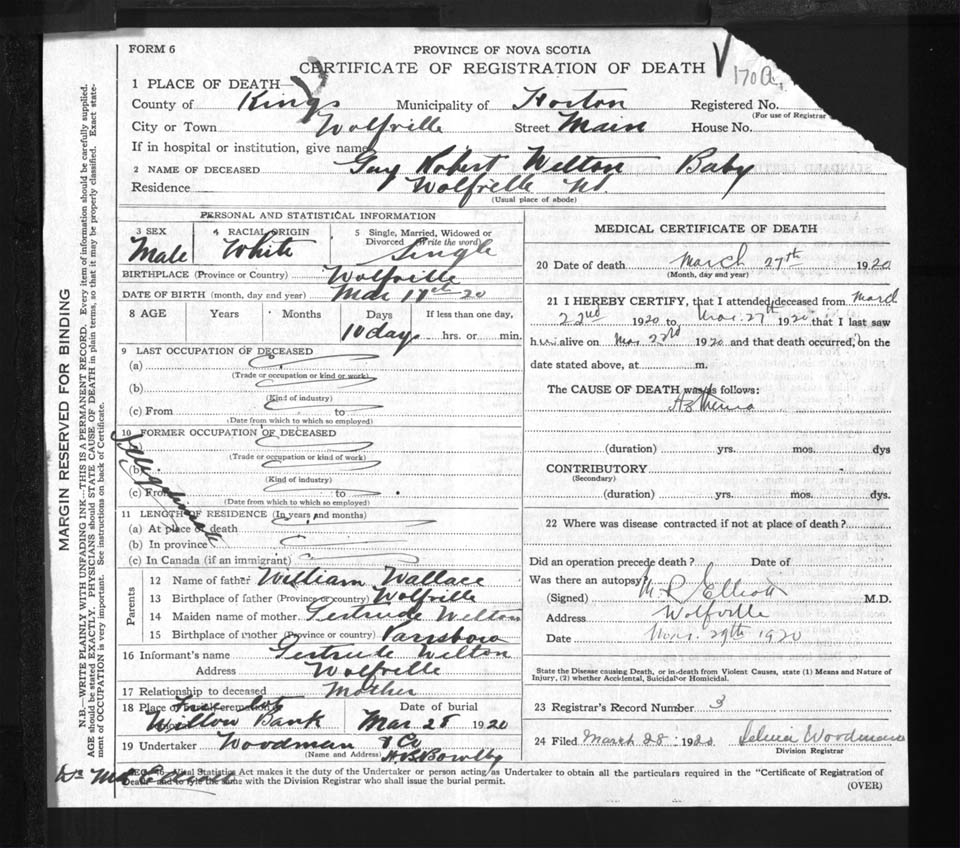 FORM 6
PROVINCE OF NOVA SCOTIA
CERTIFICATE OF REGISTRATION OF DEATH
170a
1 PLACE OF DEATH—
County of Kings Municipality of Horton Registered No.
(For use of Registrar
City or Town Wolfville Street Main House No.
If in hospital or institution, give name
2 NAME OF DECEASED Guy Robert Welton Baby
Residence Wolfville NS.
(Usual place of abode)
MARGIN RESERVED FOR BINDING
N.B.—WRITE PLAINLY WITH UNFADING INK—THIS IS A PERMANENT RECORD. Every item of information should be carefully supplied.
AGE should be stated EXACTLY. PHYSICIANS should STATE CAUSE OF DEATH in plain terms, so that it may be properly classified. Exact state-
ment of OCCUPATION is very important. See instructions on back of Certificate.
PERSONAL AND STATISTICAL INFORMATION
3 SEX Male
4 RACIAL ORIGIN White
5 Single, Married, Widowed or Divorced (Write the word) Single
BIRTHPLACE (Province or Country) Wolfville
DATE OF BIRTH (month, day and year) Mar 17th 20
8 AGE Years Months Days If less than one day,
10 days hrs. or min.
9 LAST OCCUPATION OF DECEASED
(a)
(Trade or occupation or kind or work)
(b)
(Kind of industry)
(c) From to
(Date from which to which so employed)
10 FORMER OCCUPATION OF DECEASED
(Trade or occupation or kind of work)
(b)
(Kind of industry)
(c) From to
(Date from which to which so employed)
Illegitimate
11 LENGTH OF RESIDENCE (In years and months)
(a) At place of death
(b) In province
(c) In Canada (if an immigrant)
Parents
12 Name of father William Wallace
13 Birthplace of father (Province or country) Wolfville
14 Maiden name of mother Gertrude Welton
15 Birthplace of mother (Province or country) Parrsboro
16 Informant's name Gertrude Welton
Address Wolfville
17 Relationship to deceased Mother
18 Place of burial, cremation Date of burial
Willow Bank Mar 28 1920
19 Undertaker Woodman & Co
(Name and Address) H. B. Bowlby
MEDICAL CERTIFICATE OF DEATH
20 Date of death March 27th 1920
(Month, day and year)
21 I HEREBY CERTIFY, that I attended deceased from March
22nd 1920 to Mar. 27th 1920 that I last saw
him alive on Mar 23rd 1920 and that death occurred, on the
date stated above, at m.
The CAUSE OF DEATH was as follows:
(duration) yrs. mos. dys
CONTRIBUTORY
(Secondary)
(duration) yrs. mos. dys.
22 Where was disease contracted if not at place of death?
Did an operation precede death? Date of
Was there an autopsy
(Signed) M. R. Elliott M.D.
Address Wolfville
Date Mar. 29th 1920
State the Disease causing Death, or in death from Violent Causes, state (1) Means and Nature of
Injury, (2) whether Accidental, Suicidal or Homicidal.
23 Registrar's Record Number 3
24 Filed March 28 1920 Selina Woodman
Division Registrar
Vital Statistics Act makes it the duty of the Undertaker or person acting as Undertaker to obtain all the particulars required in the "Certificate of Registration of
Death" and to file the same with the Division Registrar who shall issue the burial permit.
(OVER)